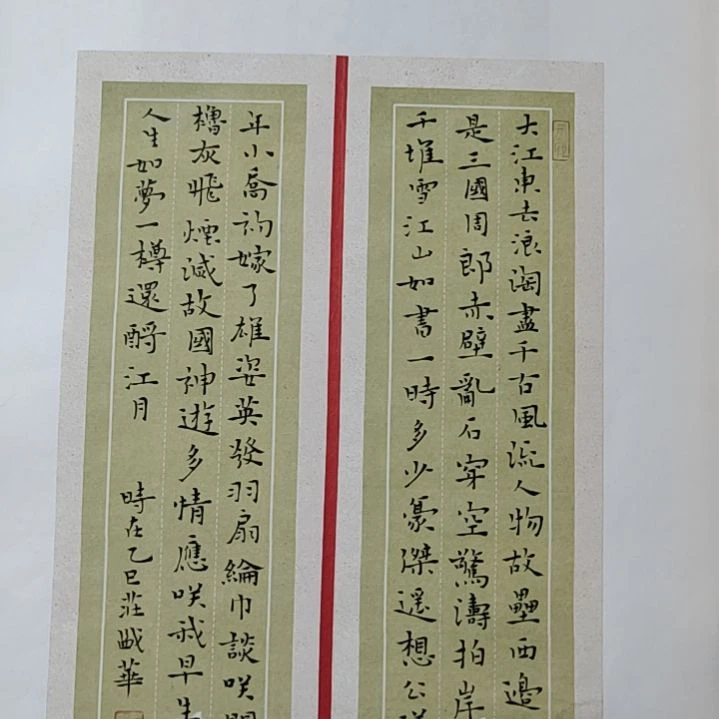 大江東去浪淘盡千古風流人物故壘西邊
是三國周郎赤壁亂石穿空驚濤拍岸
千堆雪江山如畫一時多少豪傑遥想公
年小喬初嫁了雄姿英發羽扇綸巾談咲間
櫓灰飛煙滅故國神遊多情應咲我早生
人生如夢一樽還酹江月
時在乙巳莊
華